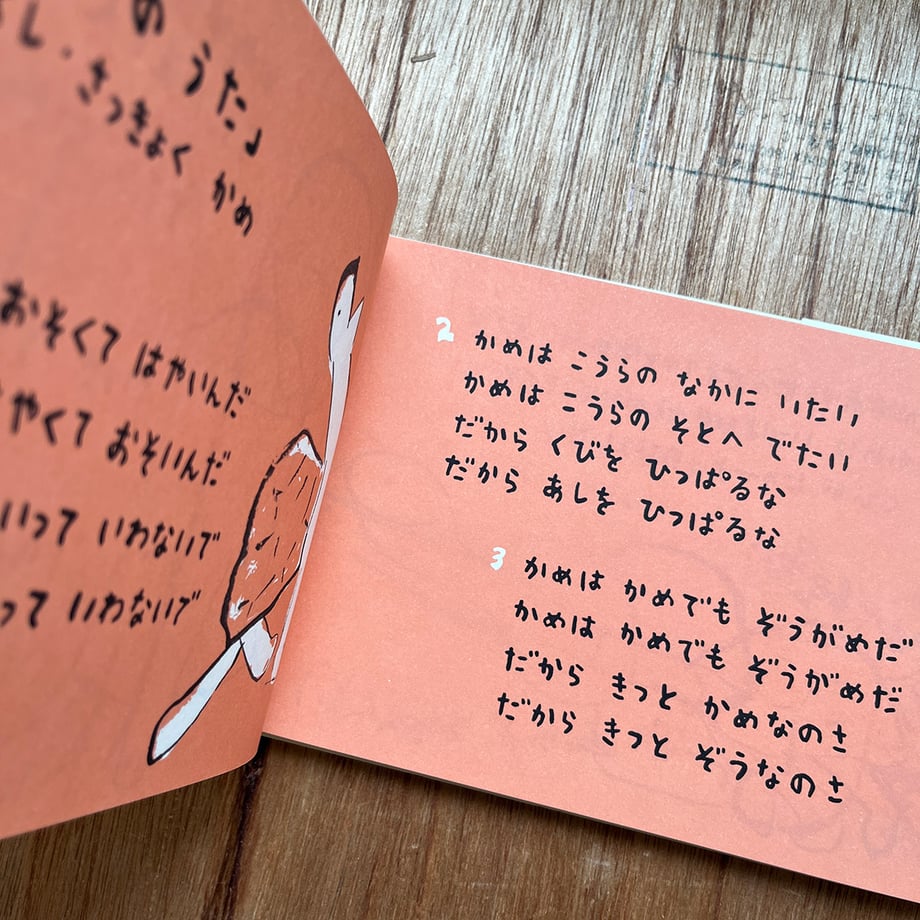 の うた」
し・さっきょく かめ
おそくて はやいんだ
やくて おそいんだ
いって いわないで
って いわないで
2 かめは こうらの なかに いたい
かめは こうらの そとへ でたい
だから くびを ひっぱるな
だから あしを ひっぱるな
3 かめは かめでも ぞうがめだ
かめは かめでも ぞうがめだ
だから きっと かめなのさ
だから きっと ぞうなのさ